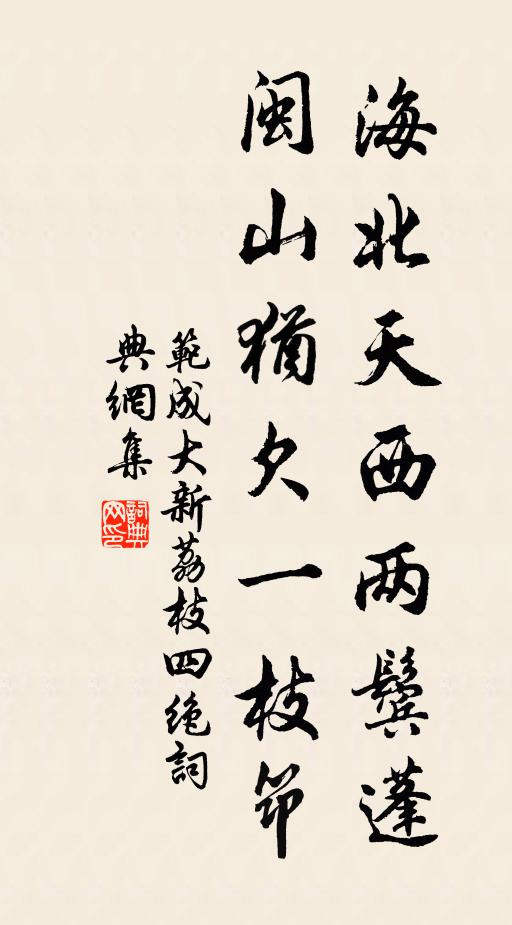 海北天西两鬓蓬
闽山犹欠一枝筇
範成大新荔枝四绝詞
典網集
詞典网印